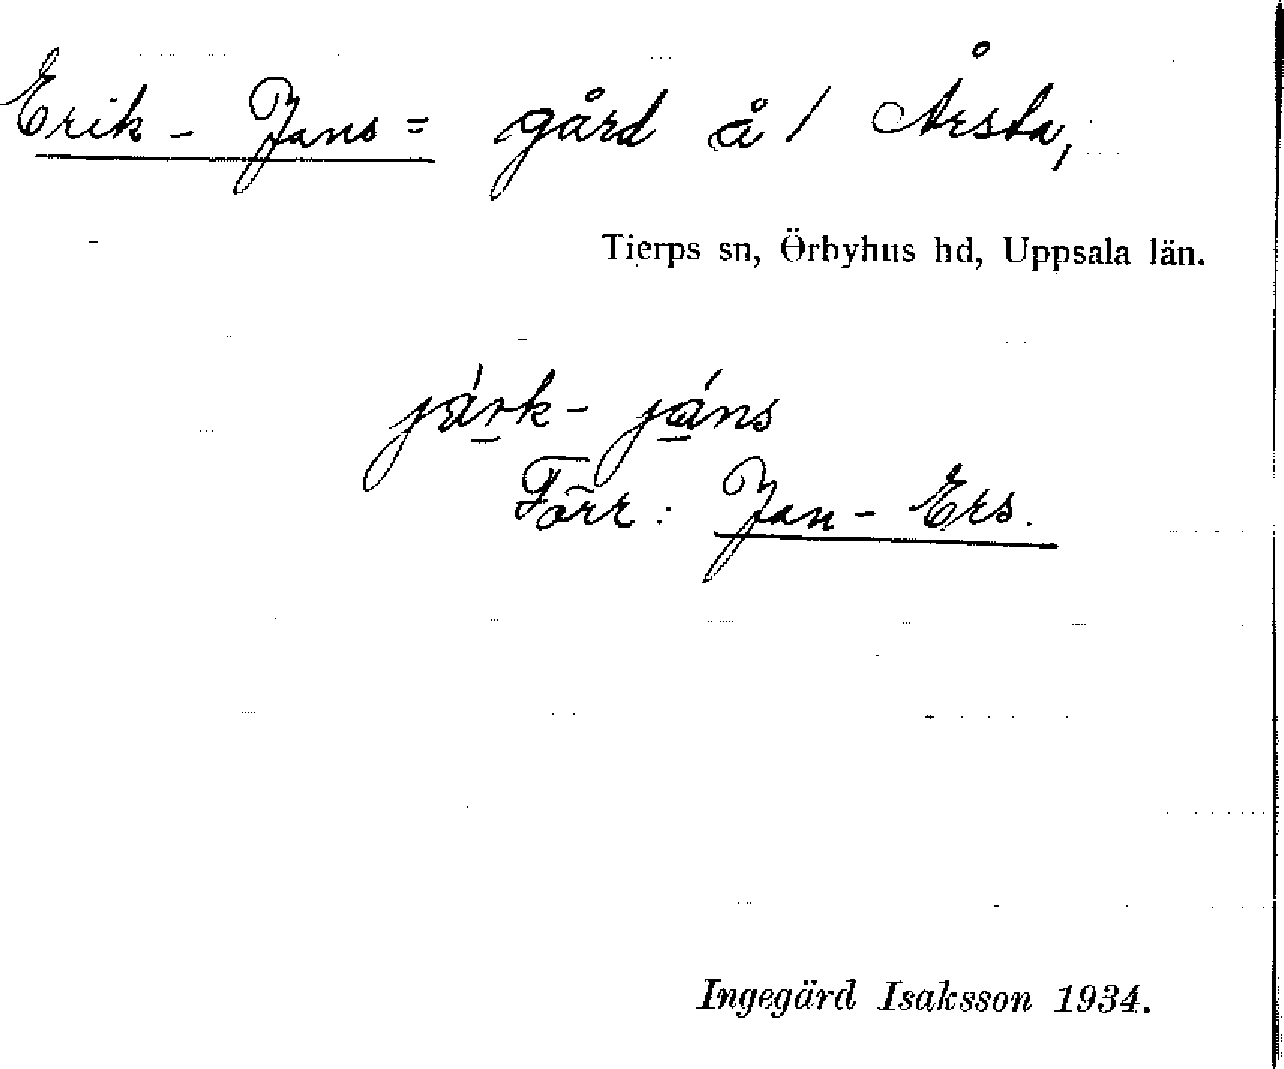 Erik - Jans = gård å / Årsta,
Tierps sn, Örbyhus hd, Uppsala län.
járk- jáns
Förr: Jan - Ers.
Ingegärd Isaksson 1934.